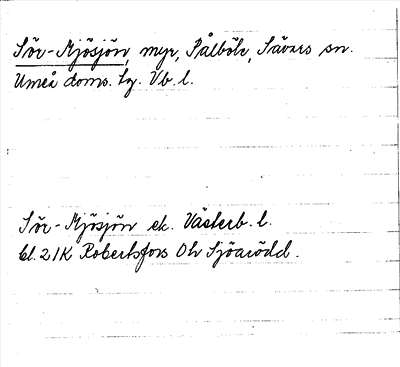 Sör-Mjösjön, myr, Pålböle, Sävars sn.
Umeå doms. tg. Vb. l.
Sör-Mjösjön ek. Västerb. l.
bl. 21K Robertsfors Oh Sjöarödd.